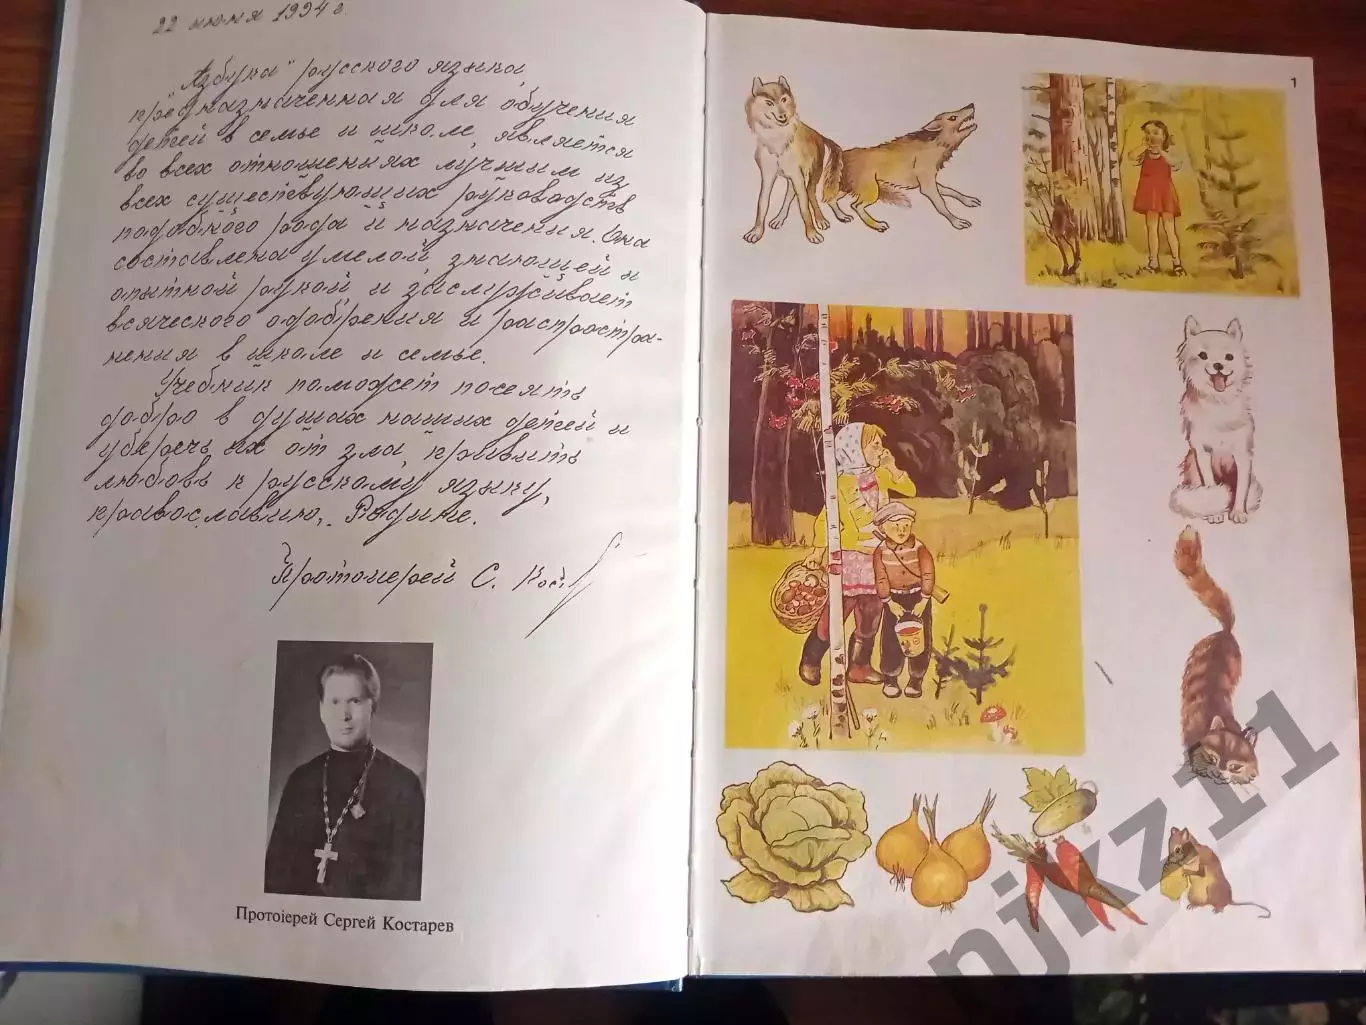 22 июня 1994 г.
"Азбука" русского языка,
предназначенная для обучения
детей в семье и школе, является
во всех отношениях лучшим из
всех существующих руководств
подобного рода и назначения. Она
составлена умелой, знающей и
опытной рукой и заслуживает
всяческого одобрения и распростра-
нения в школе и семье.
Учебник поможет посеять
добро в душах наших детей и
уберечь их от зла, привить
любовь к русскому языку,
православию, Родине.
Протоиерей С. Кост
Протоіерей Сергей Костарев
1
njkz11